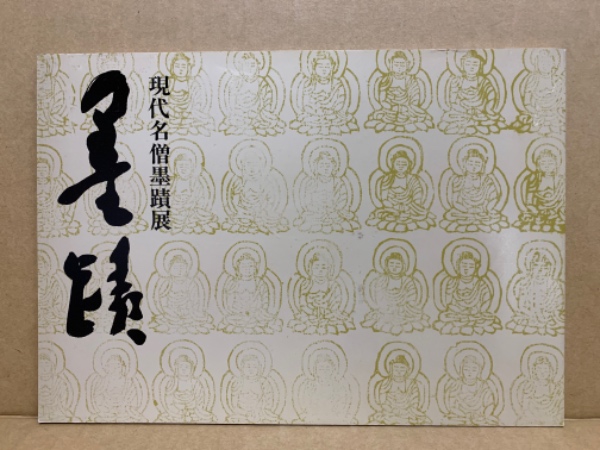 現代名僧墨蹟展
墨蹟